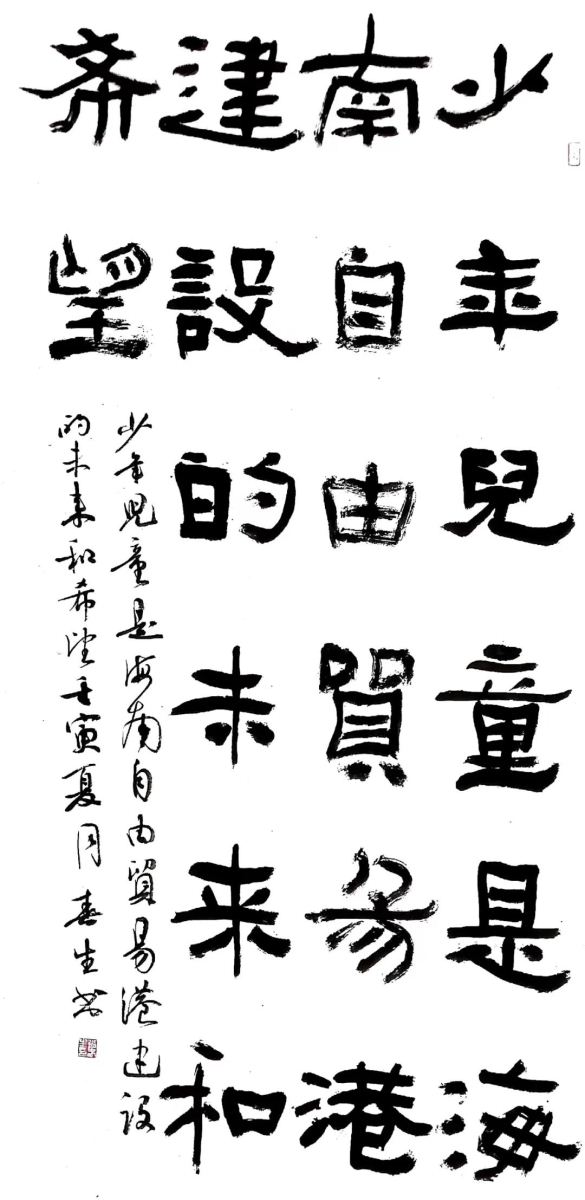 少年兒童是海
南自由貿易港
建設的未来和
希望
少年児童是海南自由貿易港建设
的未来和希望壬寅夏周喜生书